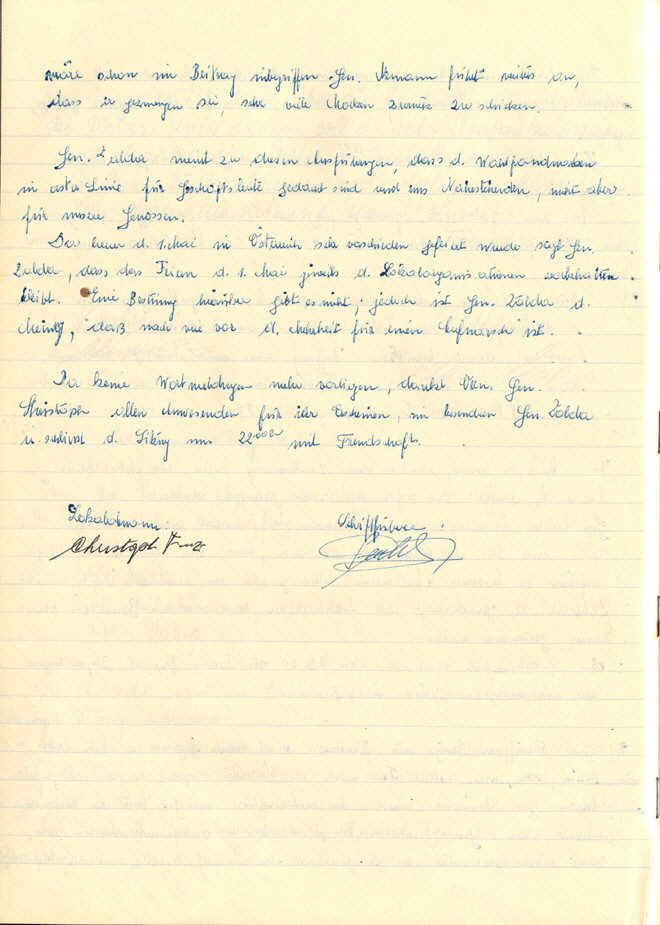 wäre schon im Beitrag inbegriffen. Gen. Neumann führt weiters an,
dass er gezwungen sei, sehr viele Marken zurück zu schicken.
Gen. Zalda meint zu diesen Ausführungen, dass d. Wahlfondmarken
in erster Linie für Geschäftsleute gedacht sind und uns Nahestehenden, nicht aber
für unsere Genossen.
Das heuer d. 1. Mai in Österreich sehr verschieden gefeiert wurde sagt Gen.
Zalda, dass das Feiern d. 1. Mai jeweils d. Lokalorganisationen vorbehalten
bleibt. Eine Bestimmung hierüber gibt es nicht, jedoch ist Gen. Zalda d.
Meinung, daß nach wie vor d. Mehrheit für einen Aufmarsch ist.
Da keine Wortmeldungen mehr vorliegen, dankt Gen.
Christoph allen Anwesenden für ihr Erscheinen, im besonderen Gen. Zalda
u. schließt d. Sitzung um 22.00 mit Freundschaft.
Lokalobmann: Schriftführer:
Christoph Franz